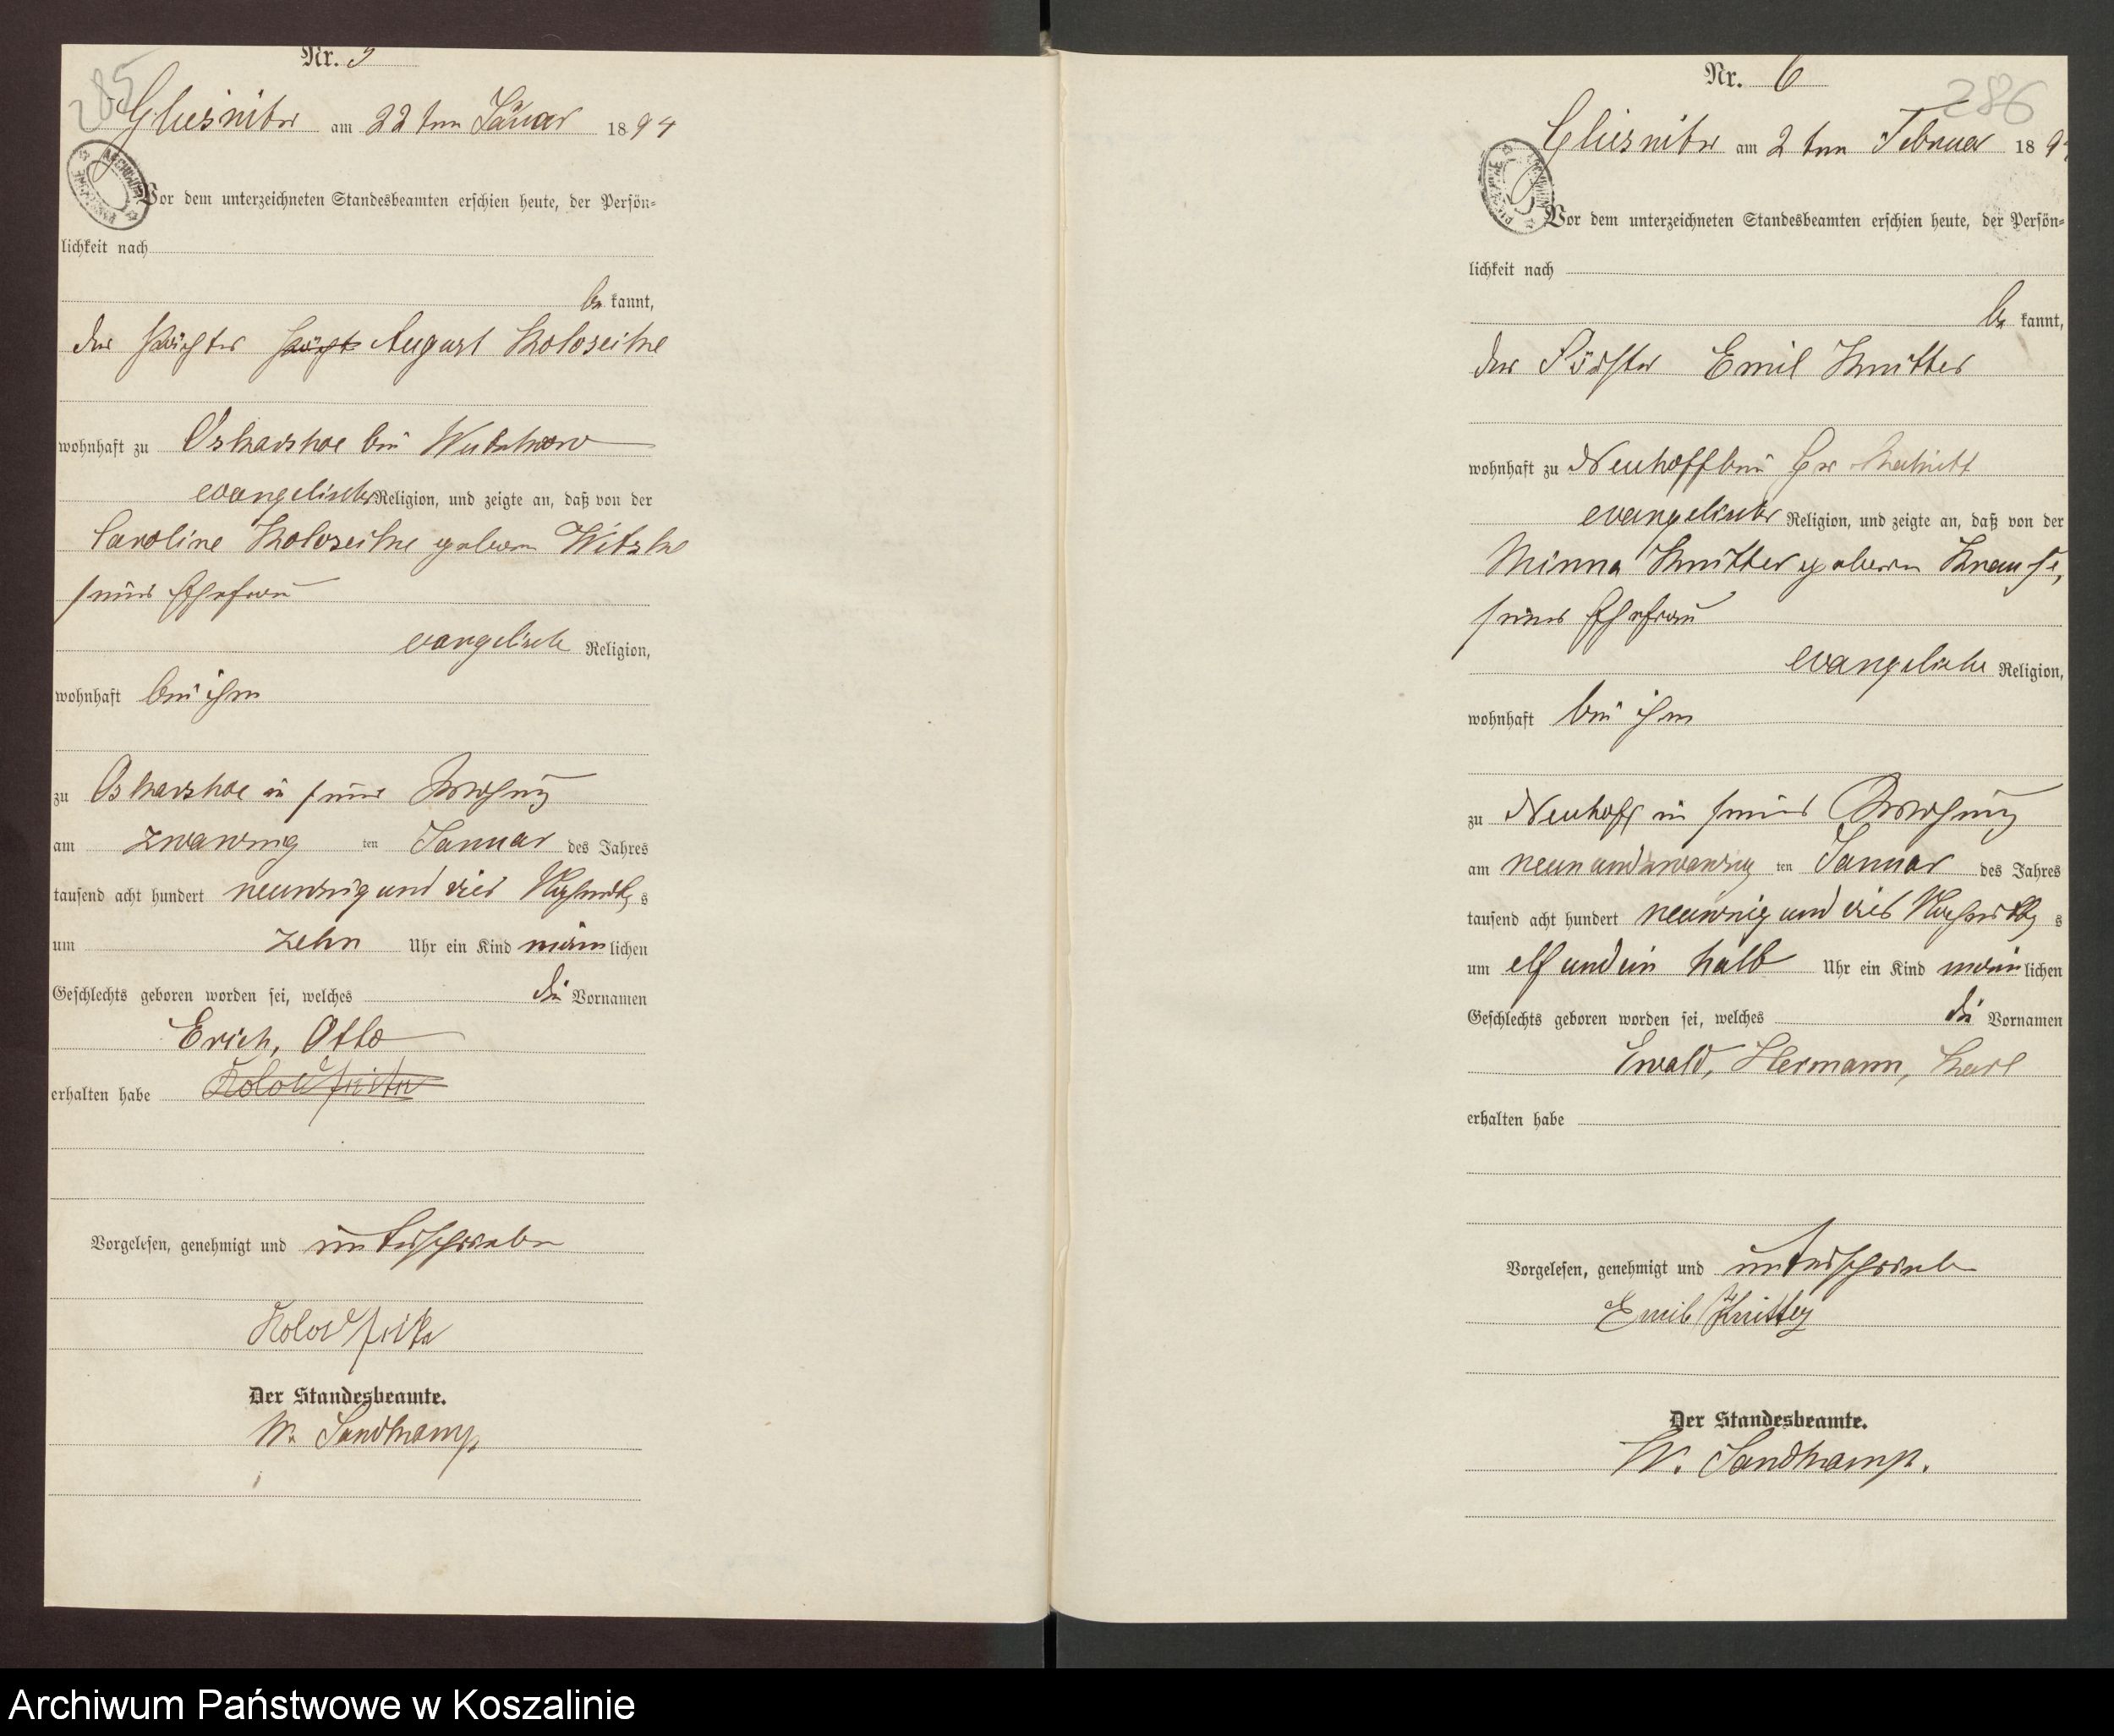 Nr. 5
285
am 22 ten Januar 1894
Vor dem unterzeichneten Standesbeamten erschien heute, der Persön=
lichkeit nach
be kannt,
der August
wohnhaft zu bei
evangelischer Religion, und zeigte an, daß von der
Caroline geboren
seiner Ehefrau
evangelische Religion,
wohnhaft bei ihm
zu in seiner Wohnung
am zwanzig ten Januar des Jahres
tausend acht hundert neunzig und vier Nachmittag s
um zehn Uhr ein Kind männ lichen
Geschlechts geboren worden sei, welches die Vornamen
Erich, Otto
erhalten habe
Vorgelesen, genehmigt und unterschrieben
Der Standesbeamte.
W. Sandkamp
Nr. 6
286
am 2 ten Februar 189
Vor dem unterzeichneten Standesbeamten erschien heute, der Persön=
lichkeit nach
be kannt,
der Förster Emil Knitter
wohnhaft zu Neuhoff bei Gr
evangelischer Religion, und zeigte an, daß von der
Minna Knitter geboren Krause,
seiner Ehefrau
evangelische Religion,
wohnhaft bei ihm
zu Neuhoff in seiner Wohnung
am neun und zwanzig ten Januar des Jahres
tausend acht hundert neunzig und vier s
um elf und ein halb Uhr ein Kind männ lichen
Geschlechts geboren worden sei, welches die Vornamen
Ewald, Hermann, Karl
erhalten habe
Vorgelesen, genehmigt und unterschrieben
Emil Knitter
Der Standesbeamte.
W. Sandkamp.
Archiwum Państwowe w Koszalinie